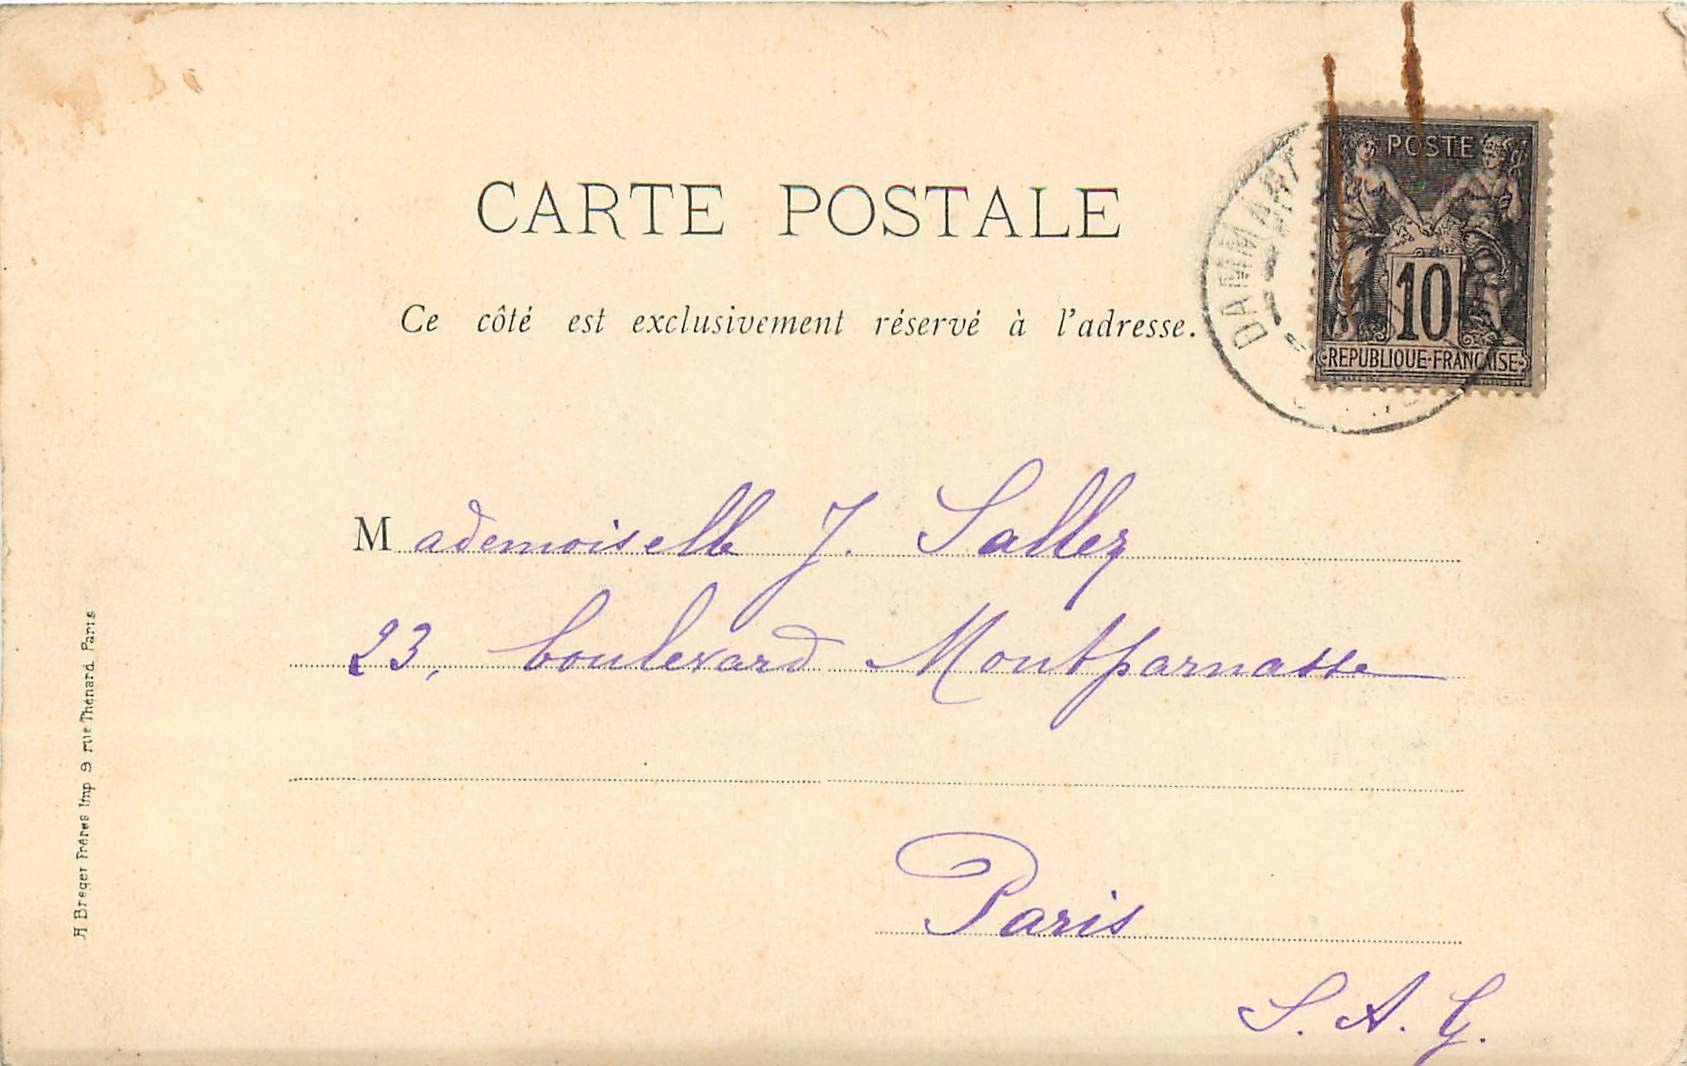 CARTE POSTALE
POSTE
10
REPUBLIQUE·FRANÇAISE
Ce côté est exclusivement réservé à l'adresse.
Mademoiselle J. Sallez
23, boulevard Montparnasse
Paris
S. A. G.
A Breger Frères Imp 9 rue Thénard Paris